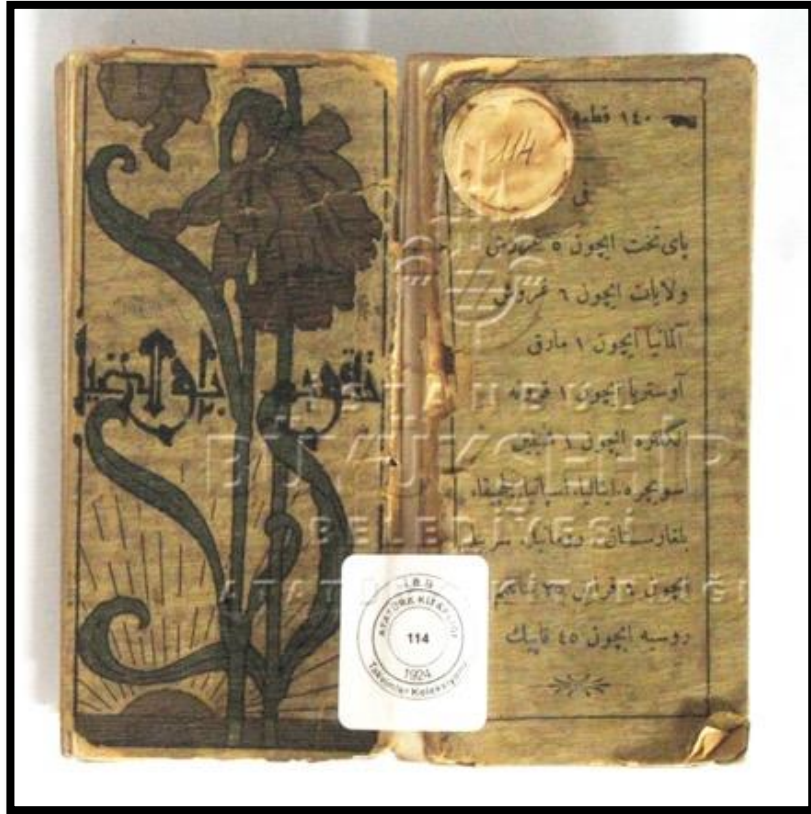 تقويم ابو الضيا
١٤٠ قطعه
114
فى
پاى تخت ايچون ٥ غروش
ولايات ايچون ٦ غروش
آلمانيا ايچون ١ مارق
آوستريا ايچون ١ قرونه
انگلتره ايچون ١ شيلين
اسويچره، ايتاليا، اسپانيا، بلچيقا،
بلغارستان، رومانيا، سربيه
ايچون ١ فرانق ٢٥ سانتيم
روسيه ايچون ٤٥ قاپيك
İSTANBUL
BÜYÜKŞEHİR
BELEDİYESİ
ATATÜRK KİTAPLIĞI
İ.B.B
ATATÜRK KİTAPLIĞI
114
1924
Takvimler Koleksiyonu